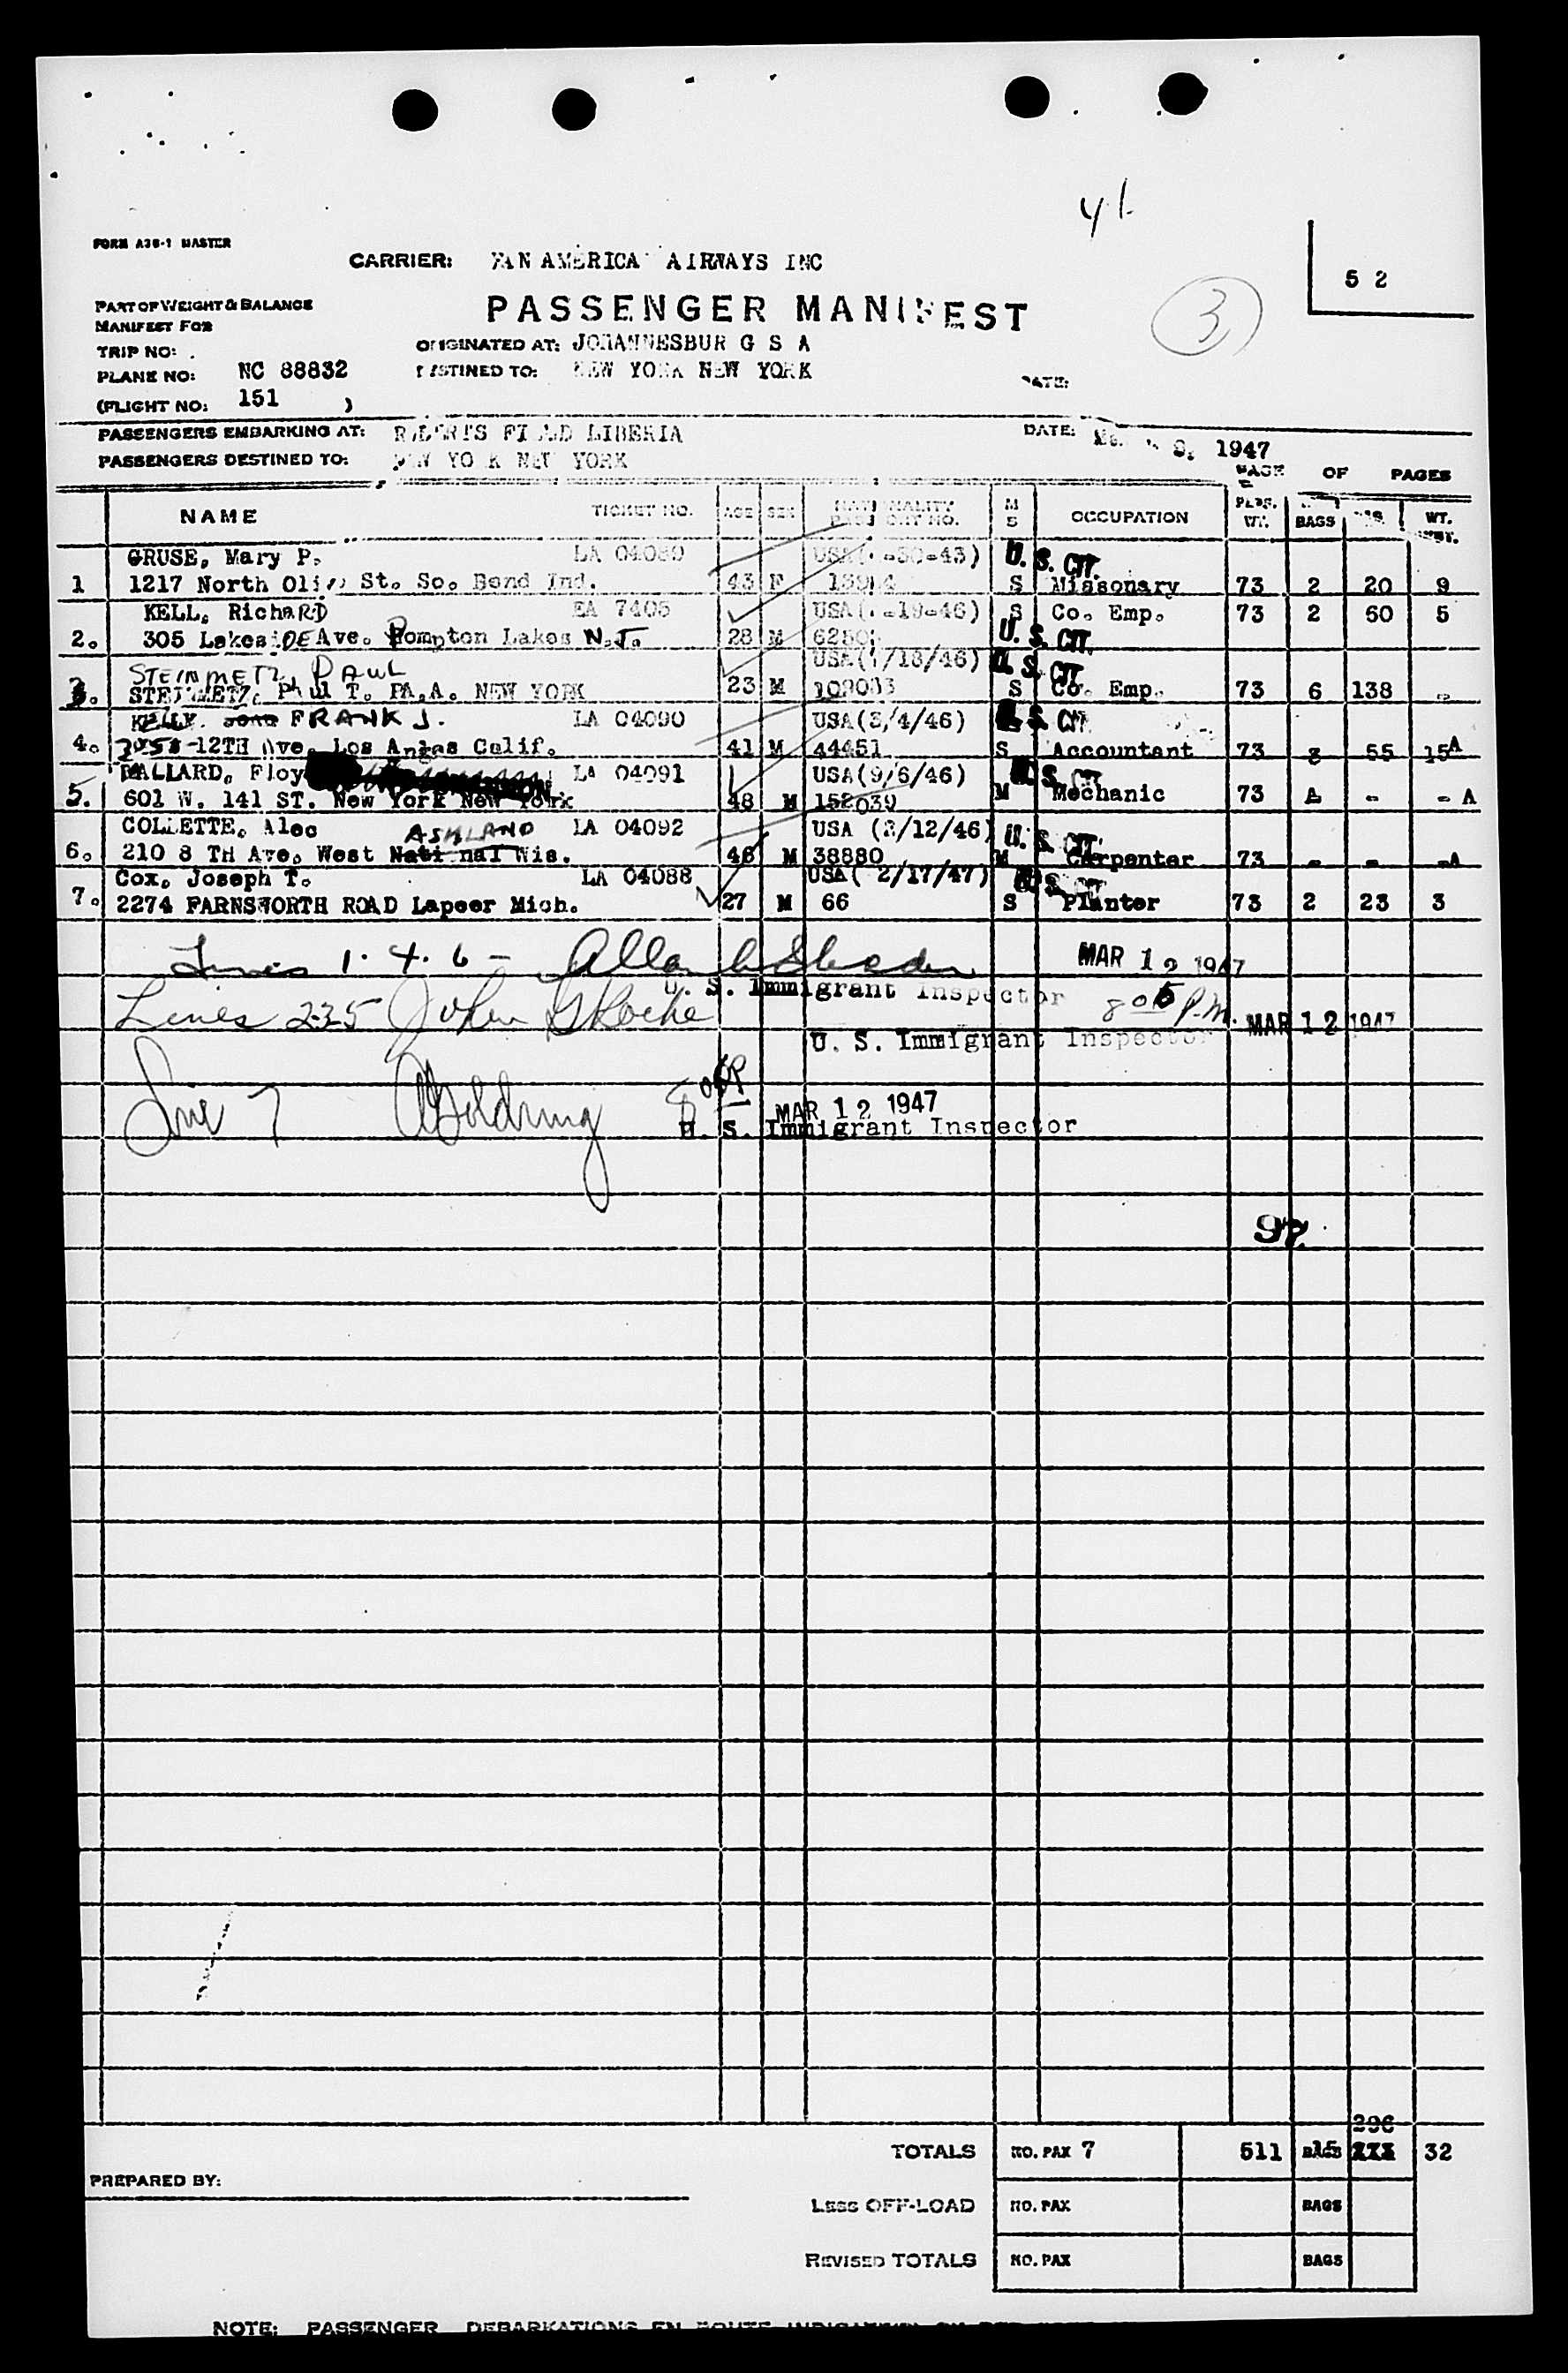 41
FORM A36-1 MASTER
CARRIER: PAN AMERICA AIRWAYS INC
5 2
PART OF WEIGHT & BALANCE
MANIFEST FOR
PASSENGER MANIFEST
3
TRIP NO:
ORIGINATED AT: JOHANNESBUR G S A
PLANE NO: NC 88832
DESTINED TO: NEW YORK NEW YORK
DATE:
(FLIGHT NO: 151 )
PASSENGERS EMBARKING AT: ROBERTS FIELD LIBERIA
DATE: 1947
PASSENGERS DESTINED TO: NEW YORK NEW YORK
PAGE OF PAGES
NAME TICKET NO. AGE SEX NATIONALITY PASSPORT NO. M S OCCUPATION PERS. WT. BAGS WT.
GRUSE, Mary P. LA 04089 USA( -30-43) U. S. CIT.
1 1217 North Olive St. So. Bend Ind. 43 F S Missonary 73 2 20 9
KELL, RichaRD EA 7405 USA( -19-46) S Co. Emp. 73 2 60 5
2. 305 LakesiDE Ave. Pompton Lakes N.J. 28 M U. S. CIT.
STEINMETZ, PAUL USA( /18/46) U. S. CIT
3. STEINMETZ, Paul T. PA.A. NEW YORK 23 M 109033 S Co. Emp. 73 6 138 -
KELLY. FRANK J. LA 04090 USA(3/4/46) U. S. CIT
4. -12TH Ave. Los Angas Calif. 41 M 44451 S Accountant 73 3 55 15A
BALLARD, Floy LA 04091 USA(9/6/46) U. S. CIT
5. 601 W. 141 ST. New York New York 48 M 152039 M Mechanic 73 A - - A
COLLETTE, Alec ASHLAND LA 04092 USA (3/12/46) U. S. CIT.
6. 210 8 TH Ave. West National Wis. 46 M 38880 M Carpenter 73 - - -A
Cox, Joseph T. LA 04088 USA( 2/17/47) U. S. CIT
7. 2274 FARNSWORTH ROAD Lapeer Mich. 27 M 66 S Planter 73 2 23 3
Lines 1. 4. 6 - MAR 12 1947
U. S. Immigrant Inspector
Lines 2-3-5 John G Roche 8 05 P.M. MAR 12 1947
U. S. Immigrant Inspector
Line 7 A Goldring 8 05 P MAR 12 1947
U. S. Immigrant Inspector
97
296
TOTALS NO. PAX 7 511 15 BAGS 32
PREPARED BY:
LESS OFF-LOAD NO. PAX BAGS
REVISED TOTALS NO. PAX BAGS
NOTE: PASSENGER DEBARKATIONS EN ROUTE